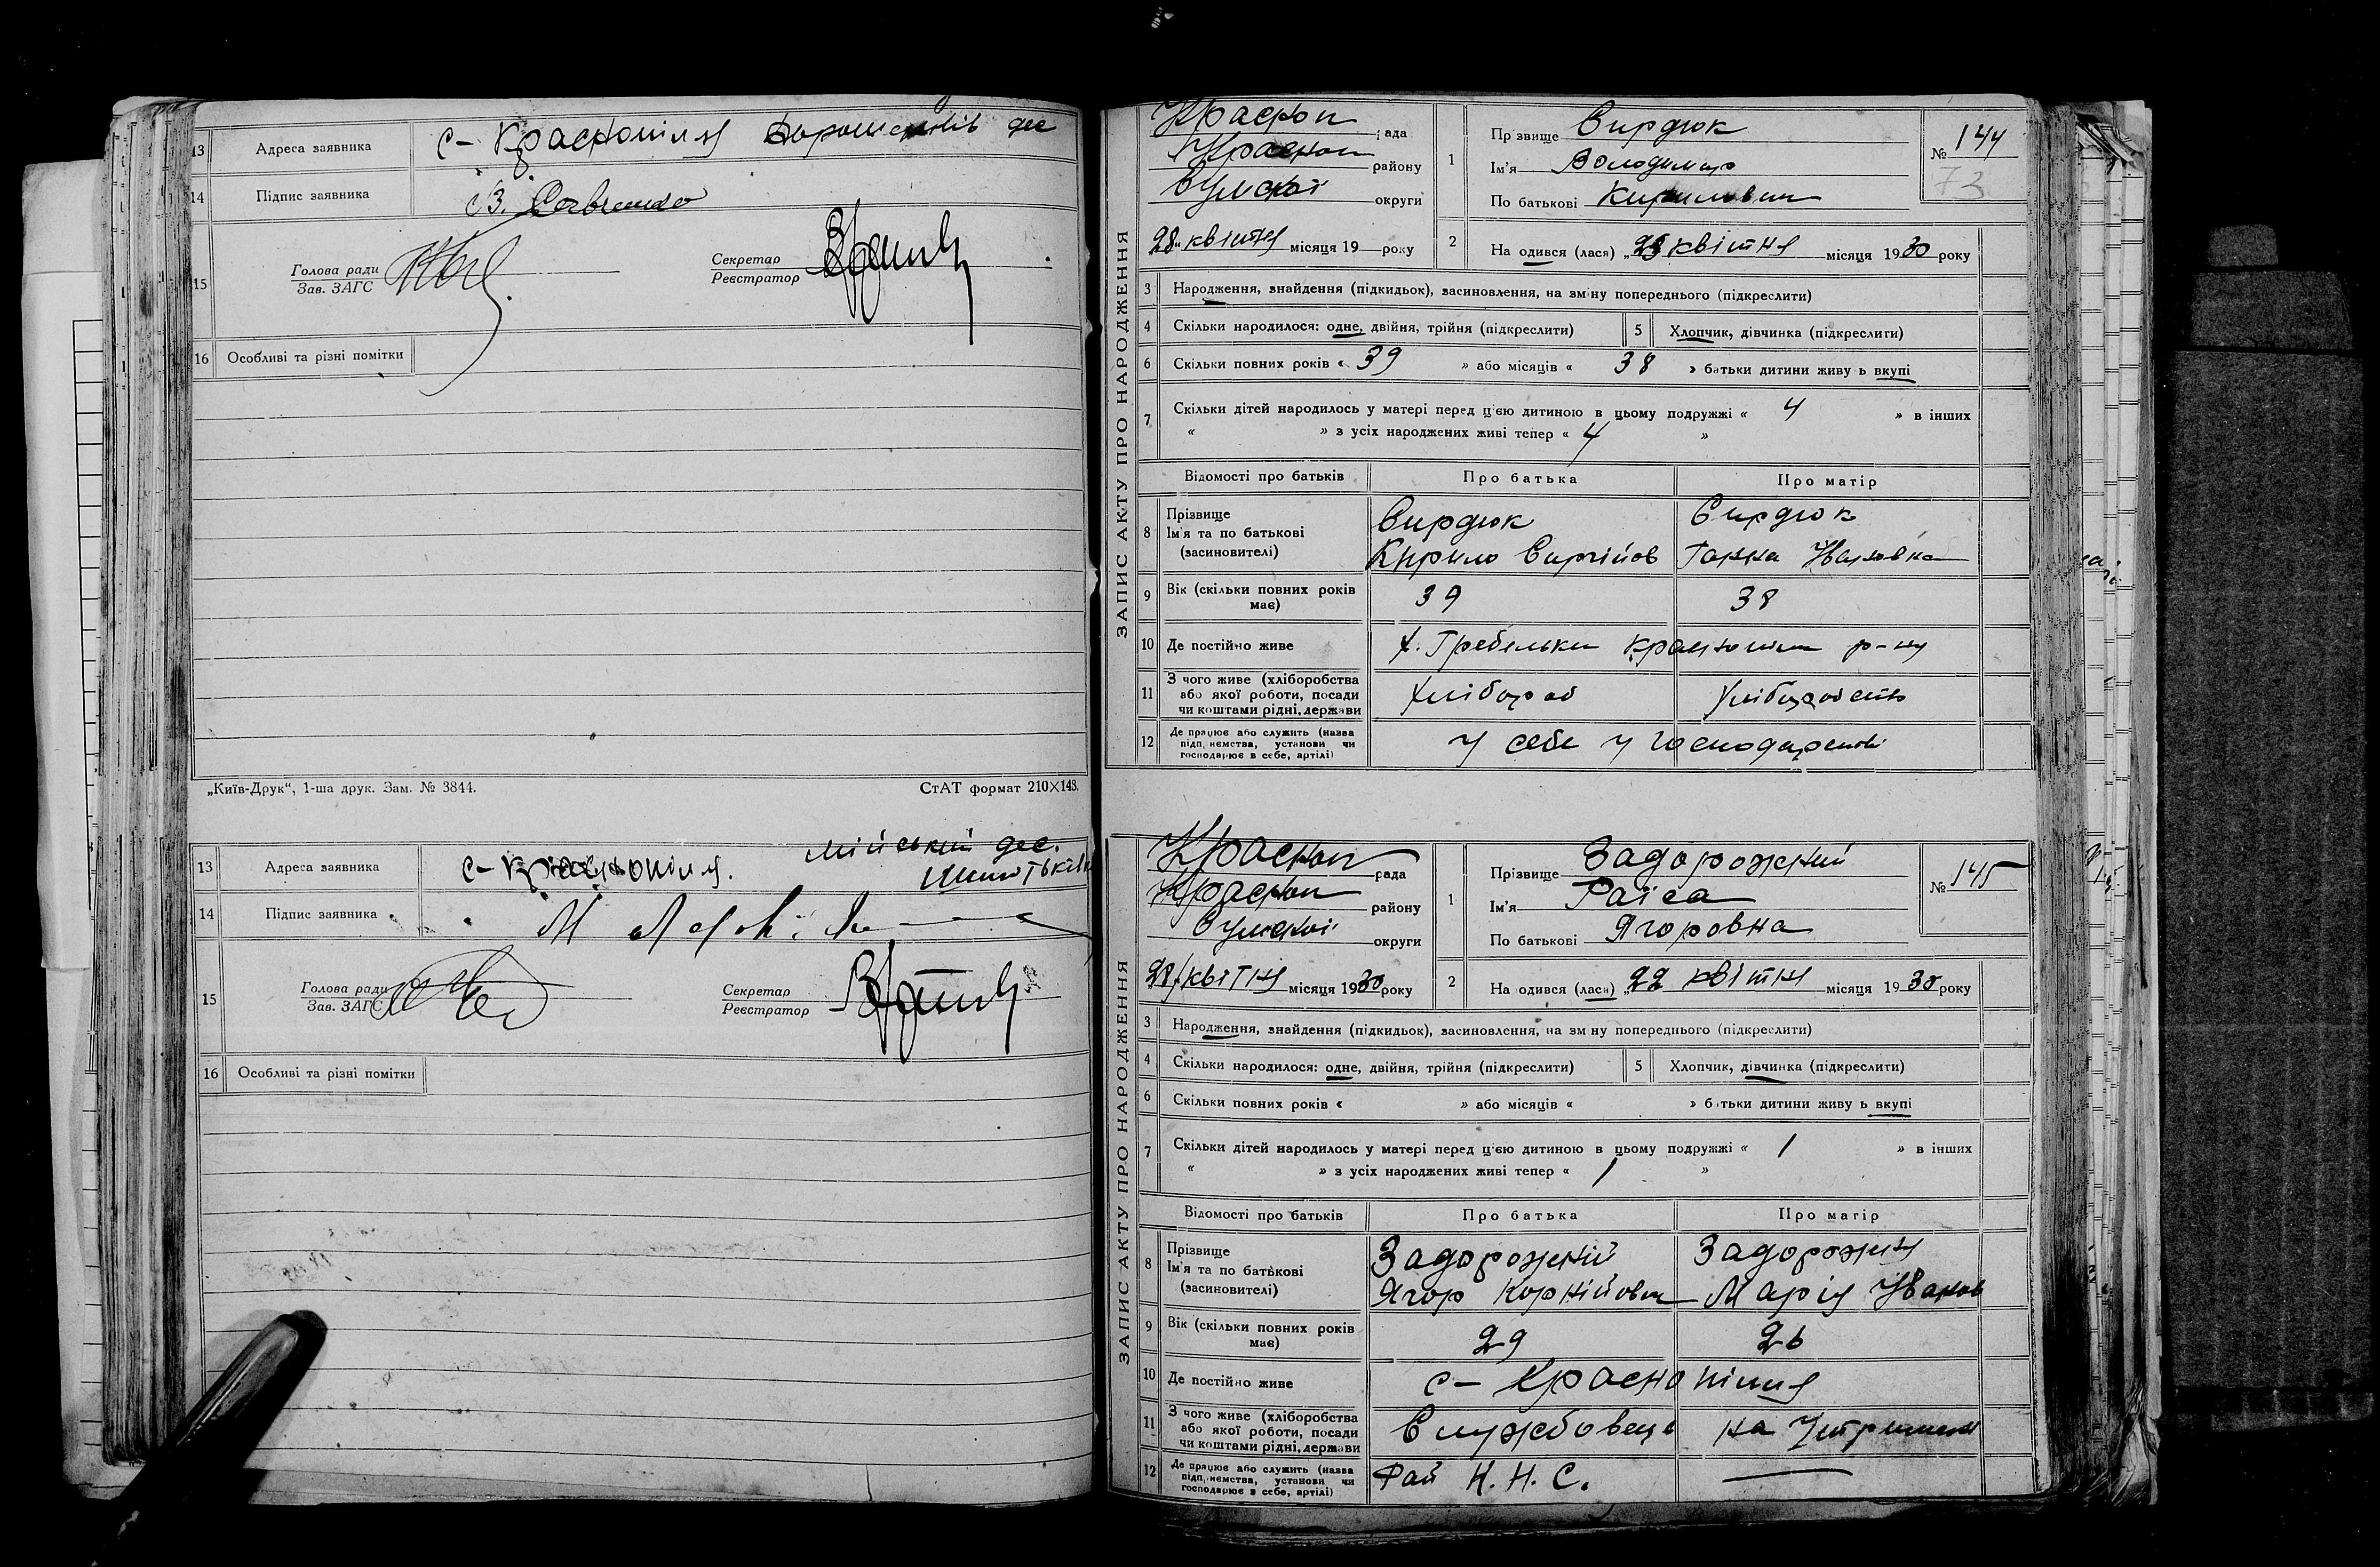 13 Адреса заявника с- Краснопілля дес
14 Підпис заявника
15 Голова ради Секретар
Зав. ЗАГС Реєстратор
16 Особливі та різні помітки
„Київ-Друк“, 1-ша друк. Зам. № 3844. СтАТ формат 210×148.
Мійський дес.
13 Адреса заявника с- Краснопілля.
14 Підпис заявника
15 Голова ради Секретар
Зав. ЗАГС Реєстратор
16 Особливі та різні помітки
ЗАПИС АКТУ ПРО НАРОДЖЕННЯ
Красноп рада
Красноп району
Сумської округи
28 квітня місяця 19 року
1 Прізвище Сирдюк
Ім'я Володимир
По батькові Кирилович
№ 144
73
2 На одився (лася) „ 25 квітня місяця 1930 року
3 Народження, знайдення (підкидьок), засиновлення, на зміну попереднього (підкреслити)
4 Скільки народилося: одне, двійня, трійня (підкреслити) 5 Хлопчик, дівчинка (підкреслити)
6 Скільки повних років « 39 » або місяців « 38 » батьки дитини живу ь вкупі
7 Скільки дітей народилось у матері перед цією дитиною в цьому подружжі « 4 » в інших
« » з усіх народжених живі тепер « 4 »
Відомості про батьків Про батька Про матір
8 Прізвище Сирдюк Сирдюк
Ім'я та по батькові
(засиновителі) Кирило Сиргійов Ганна Івановна
9 Вік (скільки повних років має) 39 38
10 Де постійно живе х. Гребельки Краснопіл р-ну
11 З чого живе (хліборобства
або якої роботи, посади хлібороб
чи коштами рідні, держави
12 Де працює або служить (назва
підприємства, установи чи у себе у господарстві
господарює в себе, артілі)
ЗАПИС АКТУ ПРО НАРОДЖЕННЯ
Красноп рада
Красноп району
Сумської округи
28 квітня місяця 1930 року
1 Прізвище Задорожний
Ім'я Раїса
По батькові Ягоровна
№ 145
2 На одився (лася) „22 квітня місяця 1930 року
3 Народження, знайдення (підкидьок), засиновлення, на зміну попереднього (підкреслити)
4 Скільки народилося: одне, двійня, трійня (підкреслити) 5 Хлопчик, дівчинка (підкреслити)
6 Скільки повних років « » або місяців « » батьки дитини живу ь вкупі
7 Скільки дітей народилось у матері перед цією дитиною в цьому подружжі « 1 » в інших
« » з усіх народжених живі тепер « 1 »
Відомості про батьків Про батька Про матір
8 Прізвище Задорожній Задорожня
Ім'я та по батькові
(засиновителі) Ягор Корнійович Марія Іванов
9 Вік (скільки повних років має) 29 26
10 Де постійно живе с- Краснопілля
11 З чого живе (хліборобства
або якої роботи, посади Службовець на Утриманні
чи коштами рідні, держави
12 Де працює або служить (назва
підприємства, установи чи Рай К. Н. С.
господарює в себе, артілі)